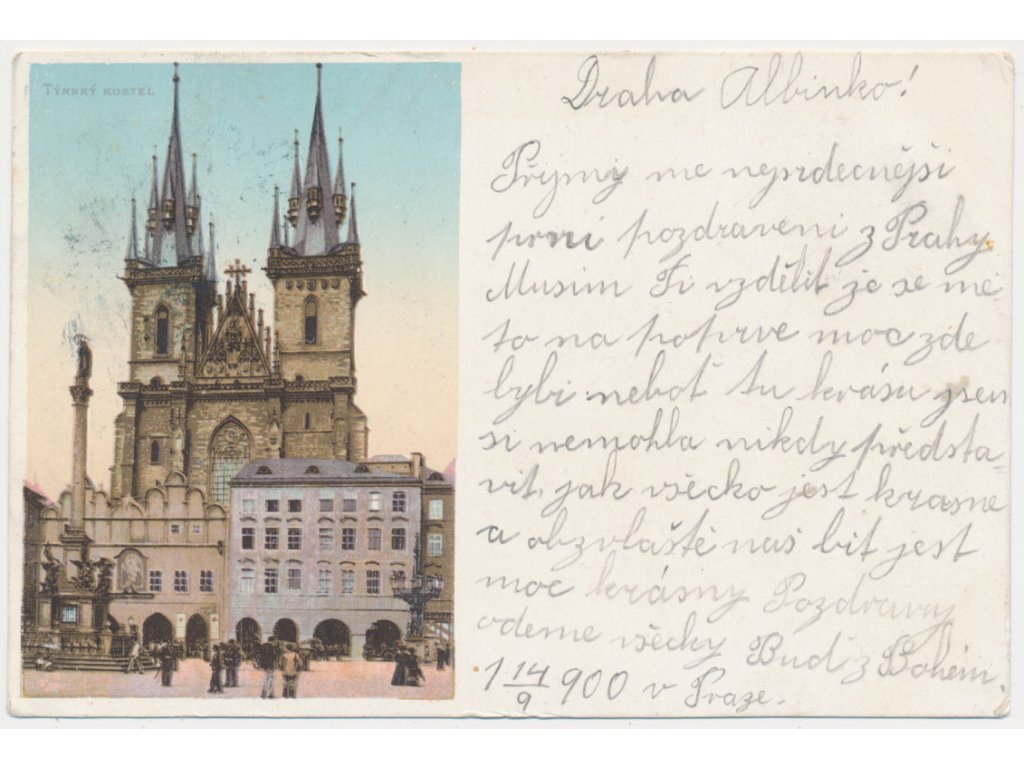 TÝNSKÝ KOSTEL
Draha Albinko!
Přijmy me nejsrdecnějši
prvni pozdraveni z Prahy.
Musim Ti vzdělit že se mě
to na poprve moc zde
bybi neboť tu krásu jsem
si nemohla nikdy předsta-
vit, jak všecko jest krasne
a obzvláště naš bit jest
moc krásny Pozdravy
odeme všecky Buď z Bohem.
1 14/9 900 v Praze.